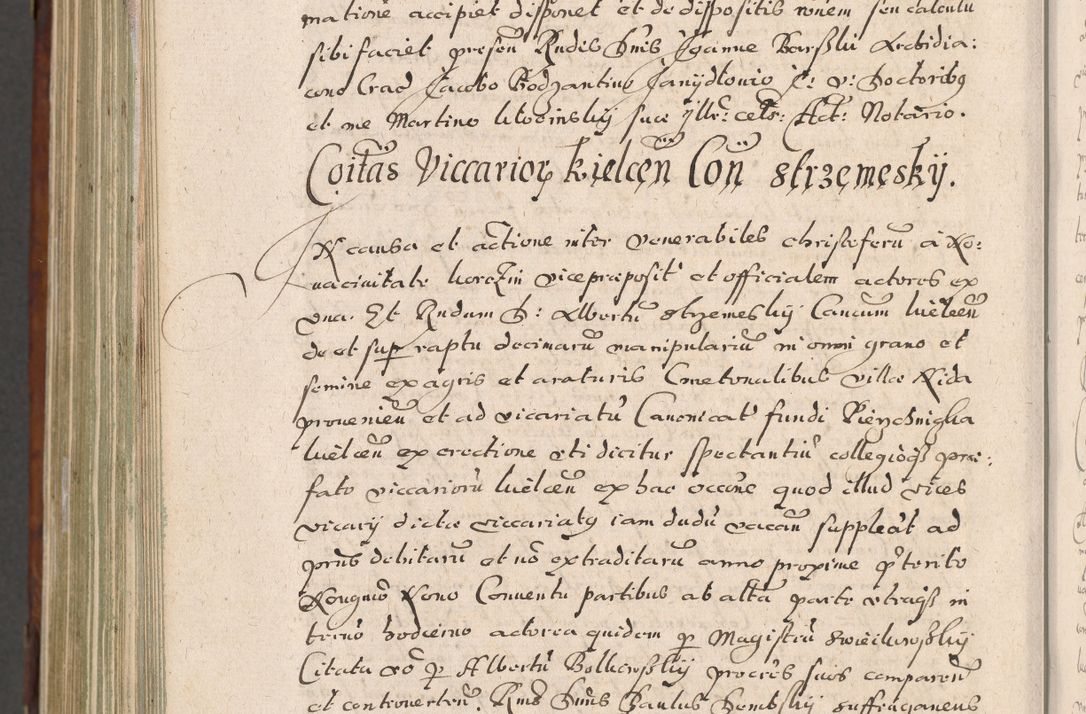 matione accipiet disponet et de dispositis rõnem seu calculu
sibi faciet presen̄ Rndis Dnis Joanne Barski Archidia:
cono Crac Jacobo Bodzantino Janijdlovio J: V: Doctoribȝ
et me Martino suæ Jllr: cels: Act: Notario.
Coit̃as Viccarior kielcen̄ Con̄ strzemeskij.
IN causa et actione inter venerabiles christoferū à No:
vacivitate vicepræposit et officialem actores ex
vna. Et Rndum D: Albertū strzemeskij Cancum kielcen̄
de et sup raptu decimarū manipulariū in omni grano et
semine ex agris et araturis Cmetonalibus villæ Nida
provenien̄ et ad vicariatū Canonicat fundi
kielcen̄ ex erectione vti dicitur spectantiū collegioqȝ præ:
fato viccariorū kielcen̄ ex hac occõne quod illud vices
vicarij dictæ viccariatȝ iam dudū vacan̄ suppleat ad
prñs debitarū et nõ extraditarū anno proxime p̃terito
Nongmõ Nono Conventu partibus ab alta parte vtraqȝ in
termō hodierno actorea quidem p Magistrū
Citata võ p Albertū procres suos comparen̄
et controverten̄. Rnds Dnus Paulus Dembskij suffraganeus